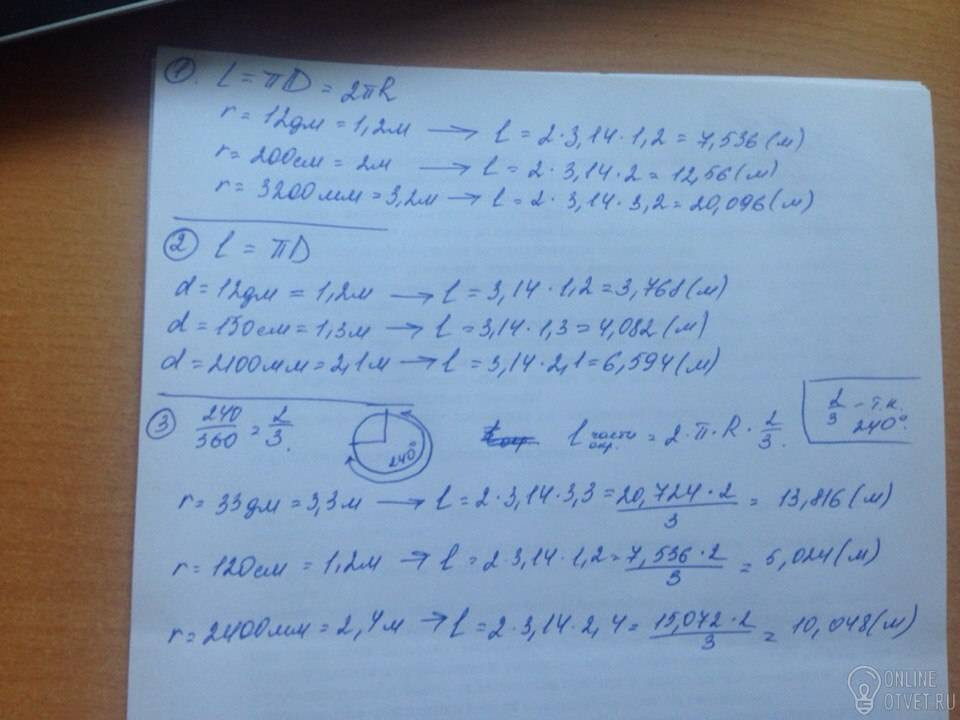 1. L = πD = 2πR
r = 12дм = 1,2м → l = 2·3,14·1,2 = 7,536(м)
r = 200см = 2м → l = 2·3,14·2 = 12,56(м)
r = 3200мм = 3,2м → l = 2·3,14·3,2 = 20,096(м)
2 l = πD
d = 12дм = 1,2м → l = 3,14·1,2 = 3,768(м)
d = 130см = 1,3м → l = 3,14·1,3 = 4,082(м)
d = 2100мм = 2,1м → l = 3,14·2,1 = 6,594(м)
3 240/360 = 2/3. 240° l части окр. = 2·π·R·2/3. 2/3 – т.к. 240°.
r = 33дм = 3,3м → l = 2·3,14·3,3 = 20,724·2/3 = 13,816(м)
r = 120см = 1,2м → l = 2·3,14·1,2 = 7,536·2/3 = 5,024(м)
r = 2400мм = 2,4м → l = 2·3,14·2,4 = 15,072·2/3 = 10,048(м)
ONLINE
OTVET.RU